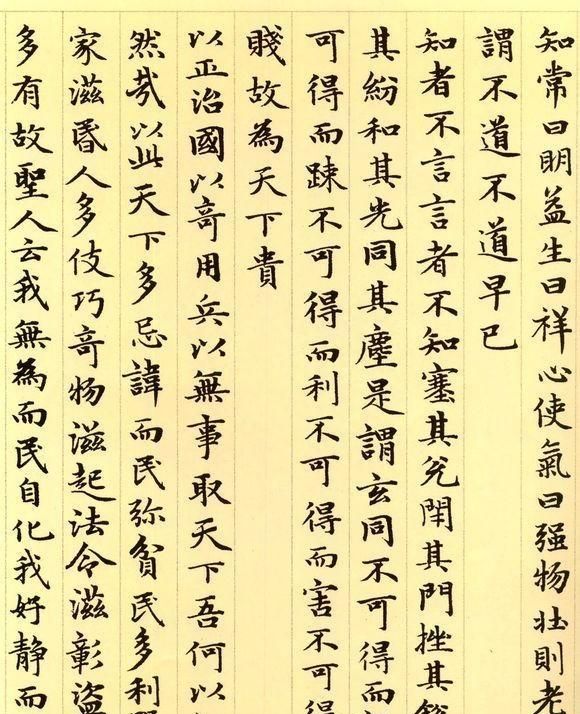 知常曰明益生曰祥心使氣曰强物壮則老
謂不道不道早已
知者不言言者不知塞其兌閇其門挫其銳
其紛和其光同其塵是謂玄同不可得而
可得而踈不可得而利不可得而害不可得
賤故為天下貴
以正治國以奇用兵以無事取天下吾何以
然哉以此天下多忌諱而民弥貧民多利
家滋昏人多伎巧奇物滋起法令滋彰盜
多有故聖人云我無為而民自化我好静而